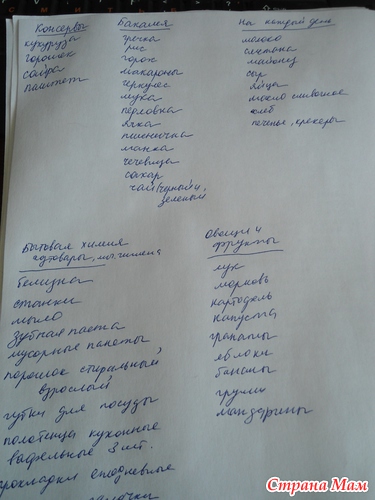 Консервы
кукуруза
горошек
сайра
паштет
Бакалея
гречка
рис
горох
макароны
геркулес
мука
перловка
ячка
пшеничка
манка
чечевица
сахар
чай (черный и
зеленый
На каждый день
молоко
сметана
майонез
сыр
яйца
масло сливочное
хлеб
печенье, крекеры
Бытовая химия
хозтовары, гигиена
белизна
станки
мыло
зубная паста
мусорные пакеты
порошок стиральный,
взрослый
губки для посуды
полотенца кухонные
вафельные 3 шт.
прокладки ежедневные
палочки
Овощи и
фрукты
лук
морковь
картофель
капуста
гранаты
яблоки
бананы
груши
мандарины
Страна Мам